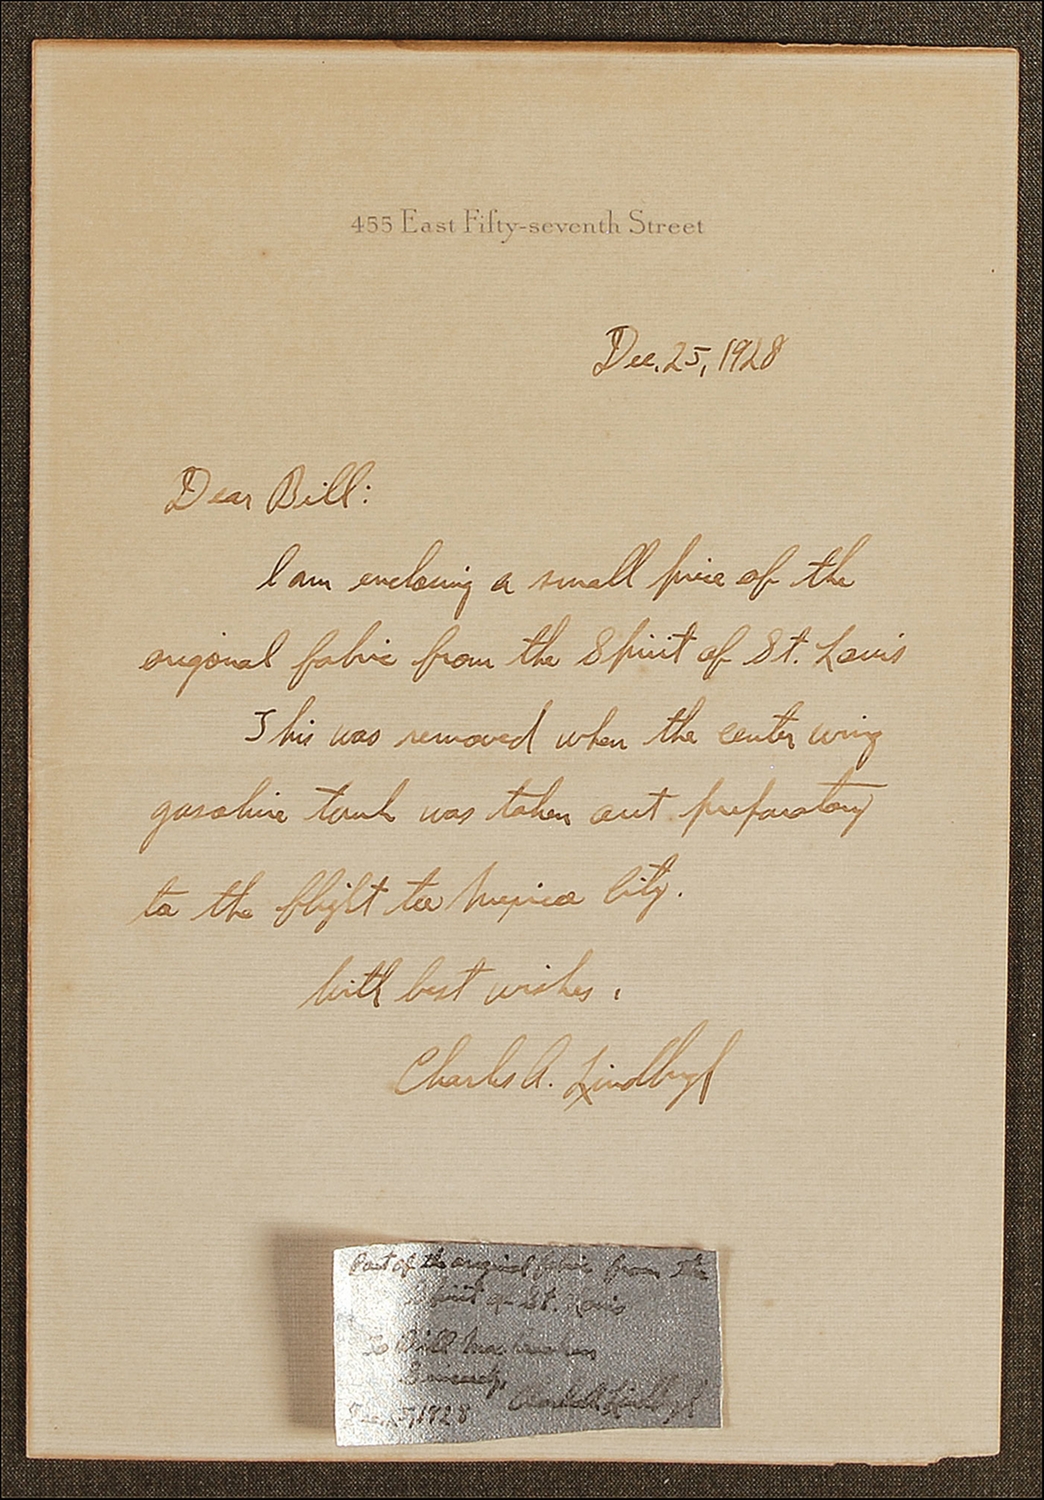 455 East Fifty-seventh Street
Dec. 25, 1928
Dear Bill:
I am enclosing a small piece of the
original fabric from the Spirit of St. Louis
This was removed when the center wing
gasoline tank was taken out preparatory
to the flight to Mexico City.
With best wishes,
Charles A. Lindbergh
Part of the original fabric from the
Spirit of St. Louis
To Bill
Sincerely,
Charles A. Lindbergh
Dec. 25, 1928